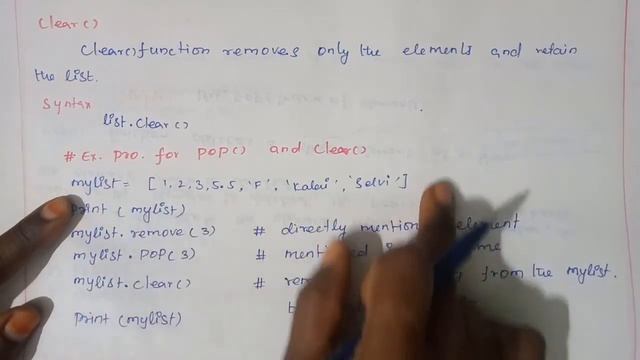 Clear()
Clear() function removes only the elements and retain
the list.
Syntax
list.clear()
# Ex. pro. for POP() and Clear()
mylist = [1, 2, 3, 5.5, 'F', 'Kalai', 'Selvi']
Print (mylist)
mylist.remove(3) # directly mention element
mylist.POP(3) #
mylist.clear() # from the mylist.
Print (mylist)